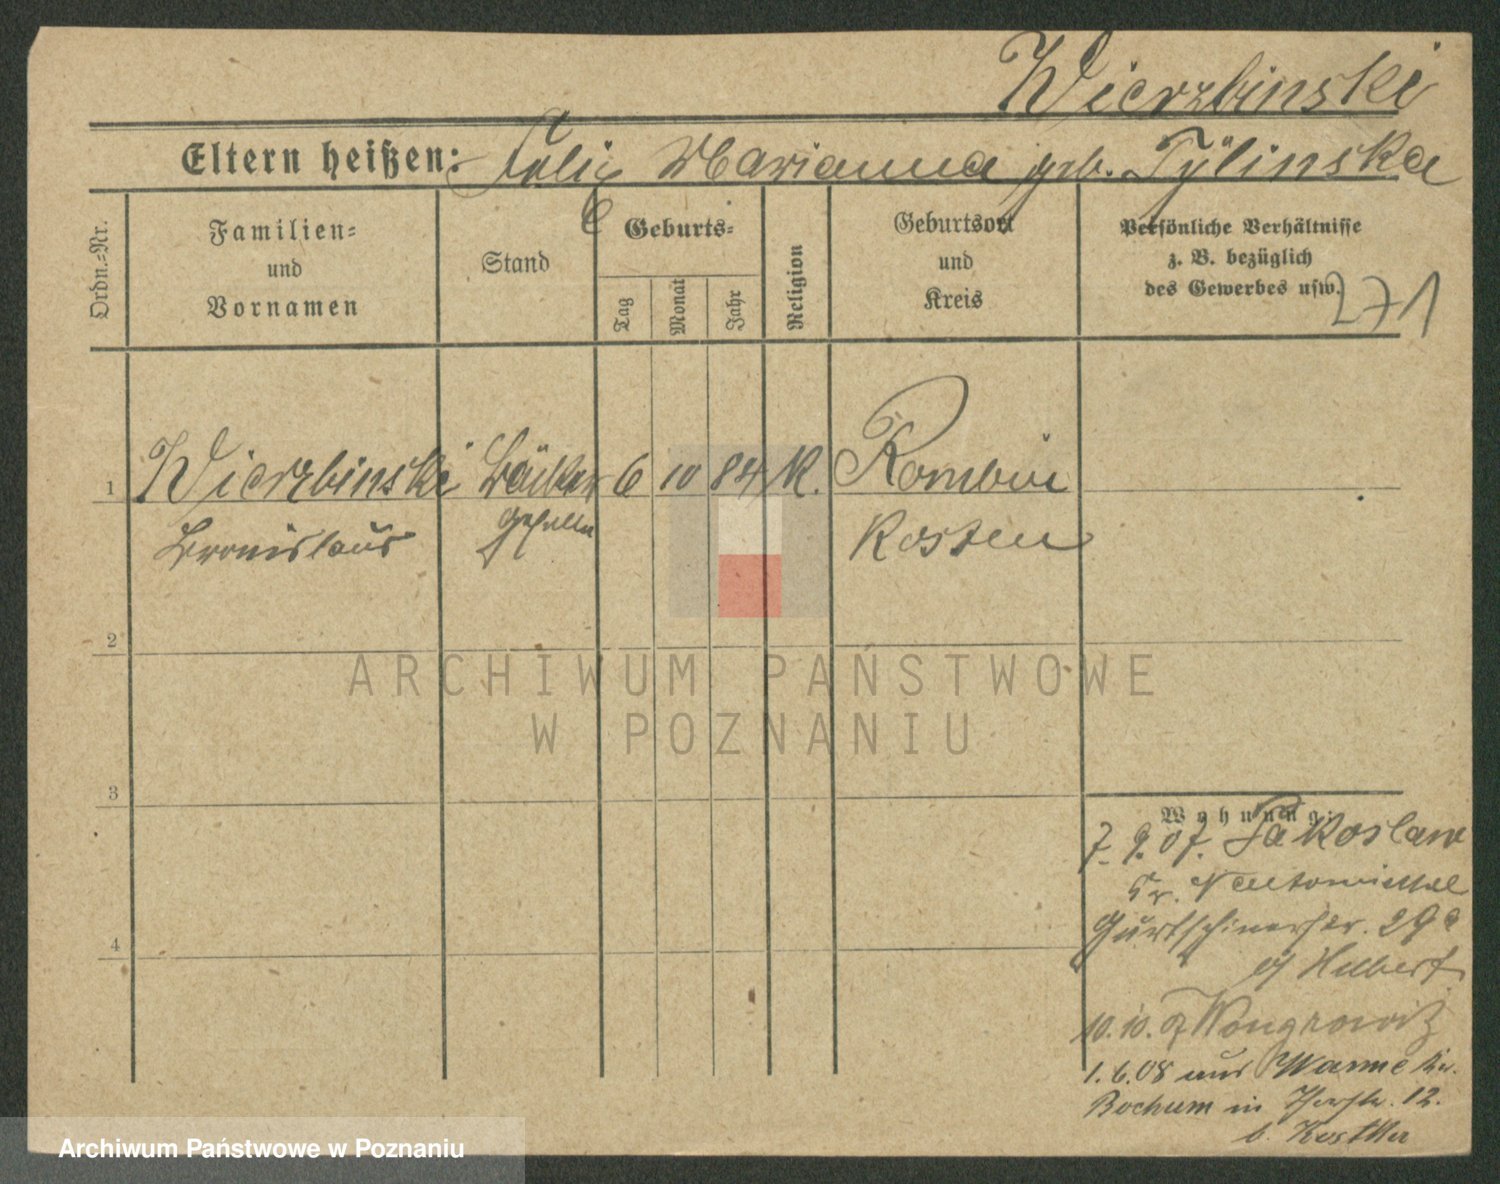 Wierzbinski
Eltern heißen: Felix Marianna geb. Tylinska
Ordn.-Nr.
Familien-
und
Vornamen
Stand
Geburts-
Tag
Monat
Jahr
Religion
Geburtsort
und
Kreis
Persönliche Verhältnisse
z. B. bezüglich
des Gewerbes usw.
271
1 Wierzbinski Bäcker 6 10 84 K. Rombin
Bronislaus Geselle Kosten
2
3
4
Wohnung:
7. 9. 07. Jakoslaw
Kr. Neutomischel
Gurtschinerstr. 29
b/ Hilbert
10. 10. 07 Wongrowitz
1. 6. 08 aus Wanne Kr.
Bochum in 12.
b.
ARCHIWUM PAŃSTWOWE
W POZNANIU
Archiwum Państwowe w Poznaniu